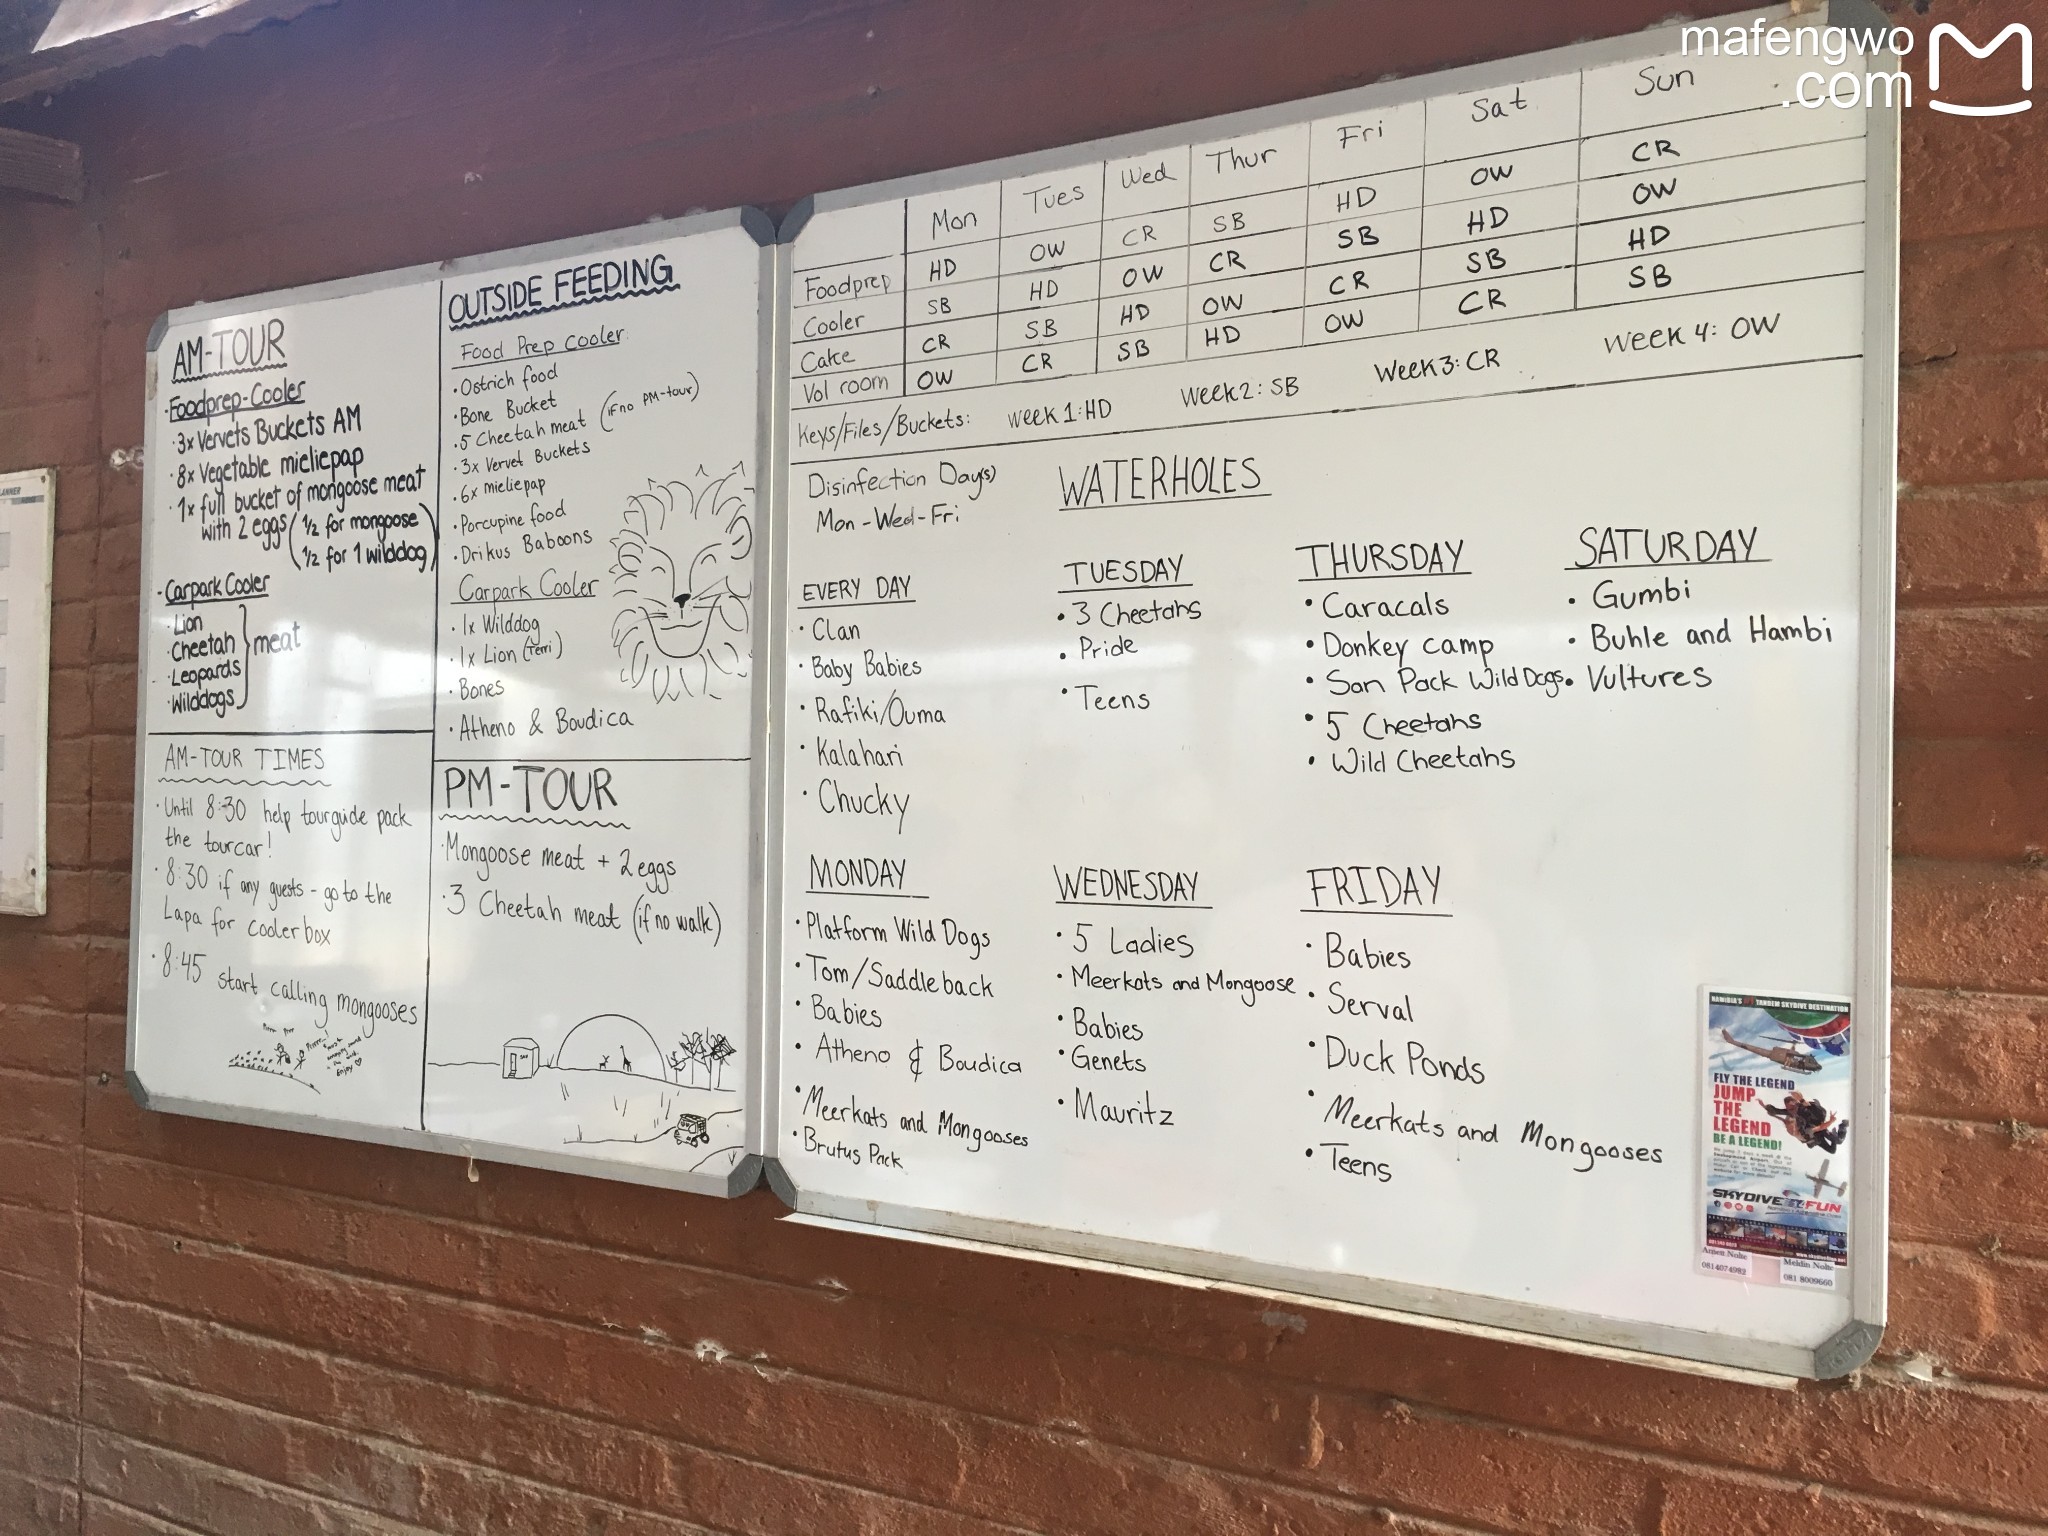 mafengwo
.com
AM-TOUR
·Foodprep-Cooler
·3x Vervets Buckets AM
·8x Vegetable mieliepap
·1x full bucket of mongoose meat
with 2 eggs (1/2 for mongoose
1/2 for 1 wilddog)
·Carpark Cooler
·Lion
·Cheetah
·Leopards
·Wilddogs
} meat
AM-TOUR TIMES
·Until 8:30 help tourguide pack
the tourcar!
·8:30 if any guests - go to the
Lapa for coolerbox
·8:45 start calling mongooses
Enjoy
OUTSIDE FEEDING
Food Prep Cooler
·Ostrich food
·Bone Bucket
·5 Cheetah meat (if no PM-tour)
·3x Vervet Buckets
·6x mieliepap
·Porcupine food
·Drikus Baboons
Carpark Cooler
·1x Wilddog
·1x Lion (Terri)
·Bones
·Atheno & Boudica
PM-TOUR
·Mongoose meat + 2 eggs
·3 Cheetah meat (if no walk)
Mon Tues Wed Thur Fri Sat Sun
Foodprep HD OW CR SB HD OW CR
Cooler SB HD OW CR SB HD OW
Cake CR SB HD OW CR SB HD
Vol room OW CR SB HD OW CR SB
Keys/Files/Buckets: week 1: HD Week 2: SB Week 3: CR Week 4: OW
Disinfection Day(s)
Mon - Wed - Fri
WATERHOLES
EVERY DAY
·Clan
·Baby Babies
·Rafiki/Ouma
·Kalahari
·Chucky
TUESDAY
·3 Cheetahs
·Pride
·Teens
THURSDAY
·Caracals
·Donkey camp
·San Pack Wild Dogs
·5 Cheetahs
·Wild Cheetahs
SATURDAY
·Gumbi
·Buhle and Hambi
·Vultures
MONDAY
·Platform Wild Dogs
·Tom/Saddleback
·Babies
·Atheno & Boudica
·Meerkats and Mongooses
·Brutus Pack
WEDNESDAY
·5 Ladies
·Meerkats and Mongoose
·Babies
·Genets
·Mauritz
FRIDAY
·Babies
·Serval
·Duck Ponds
·Meerkats and Mongooses
·Teens
NAMIBIA'S TANDEM SKYDIVE DESTINATION
FLY THE LEGEND
JUMP
THE
LEGEND
BE A LEGEND!
SKYDIVE 4 FUN
Nolte
0814074982
Meldin Nolte
081 8009660